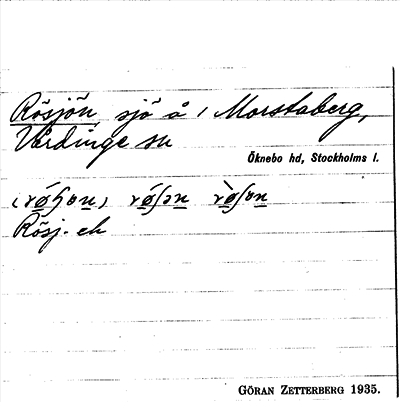 Rösjön, sjö å 1 Morstaberg,
Vårdinge sn
Öknebo hd, Stockholms l.
Rösj. ek
GÖRAN ZETTERBERG 1935.